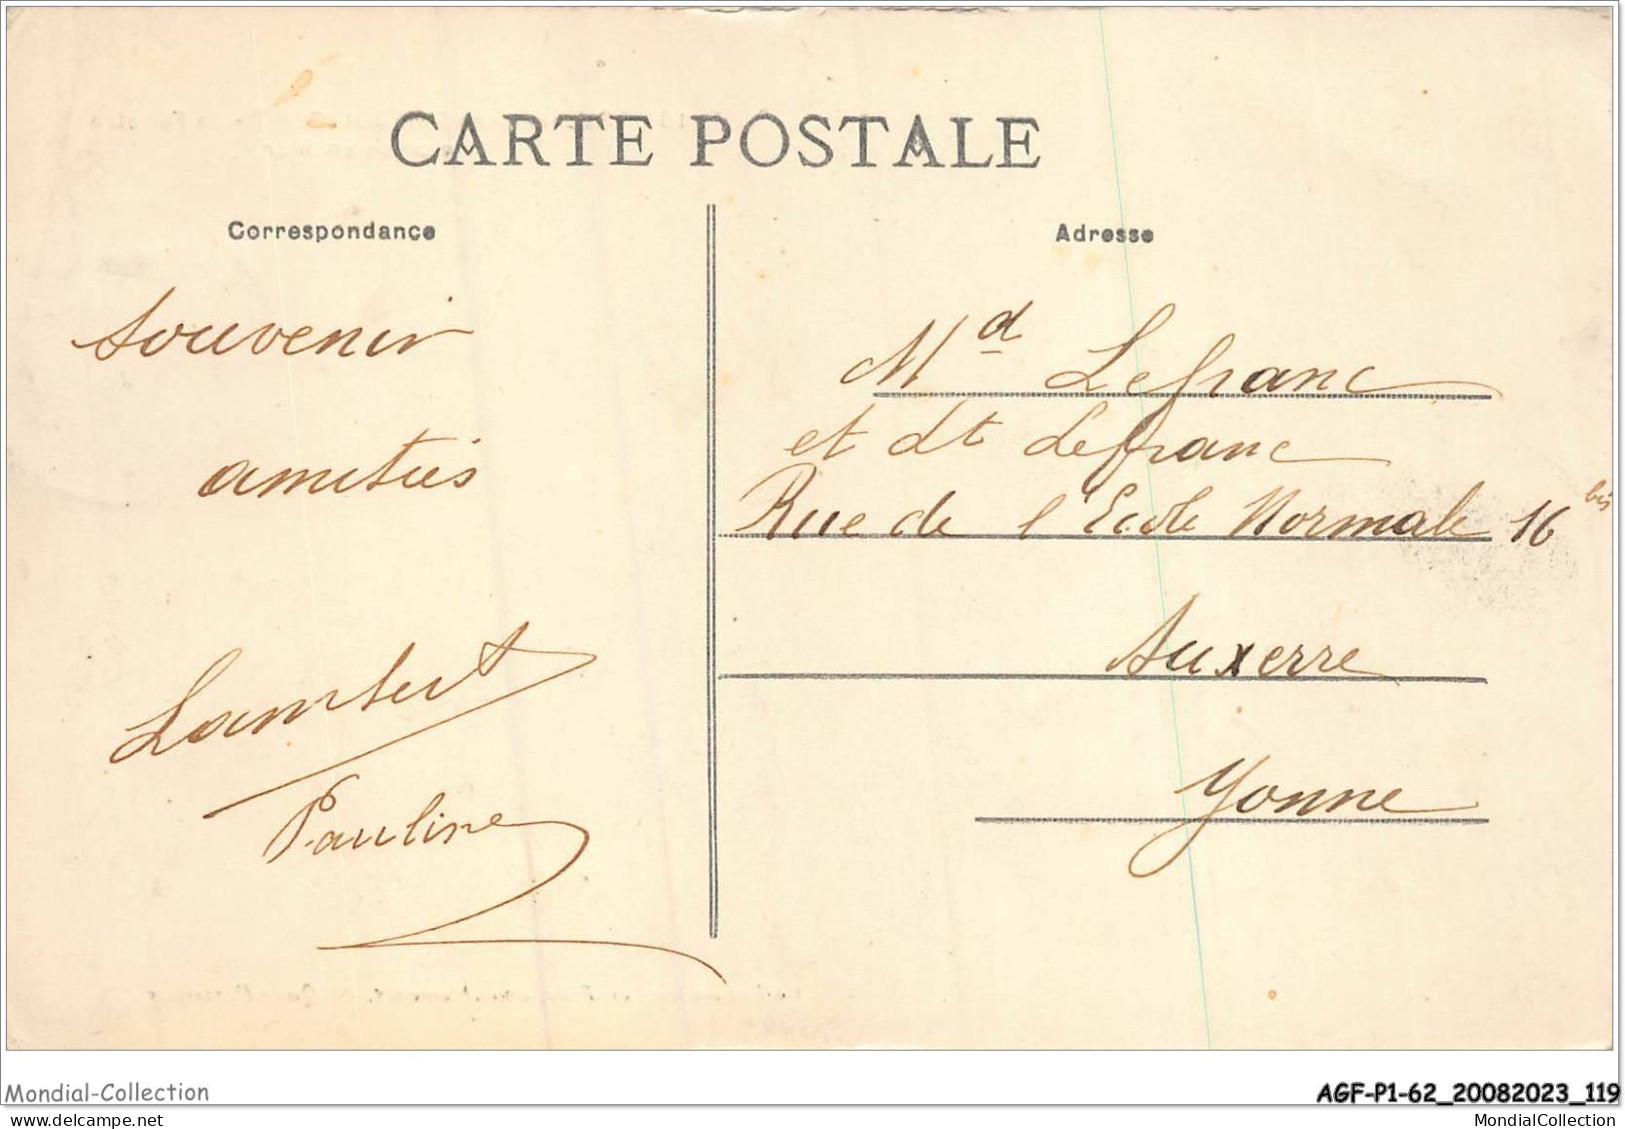 CARTE POSTALE
Correspondance
souvenir
amitiés
Lambert
Pauline
Adresse
Md Lefranc
et dt Lefranc
Rue de l'Ecole Normale 16 bis
Auxerre
Yonne
Mondial-Collection
AGF-P1-62_20082023_119
MondialCollection